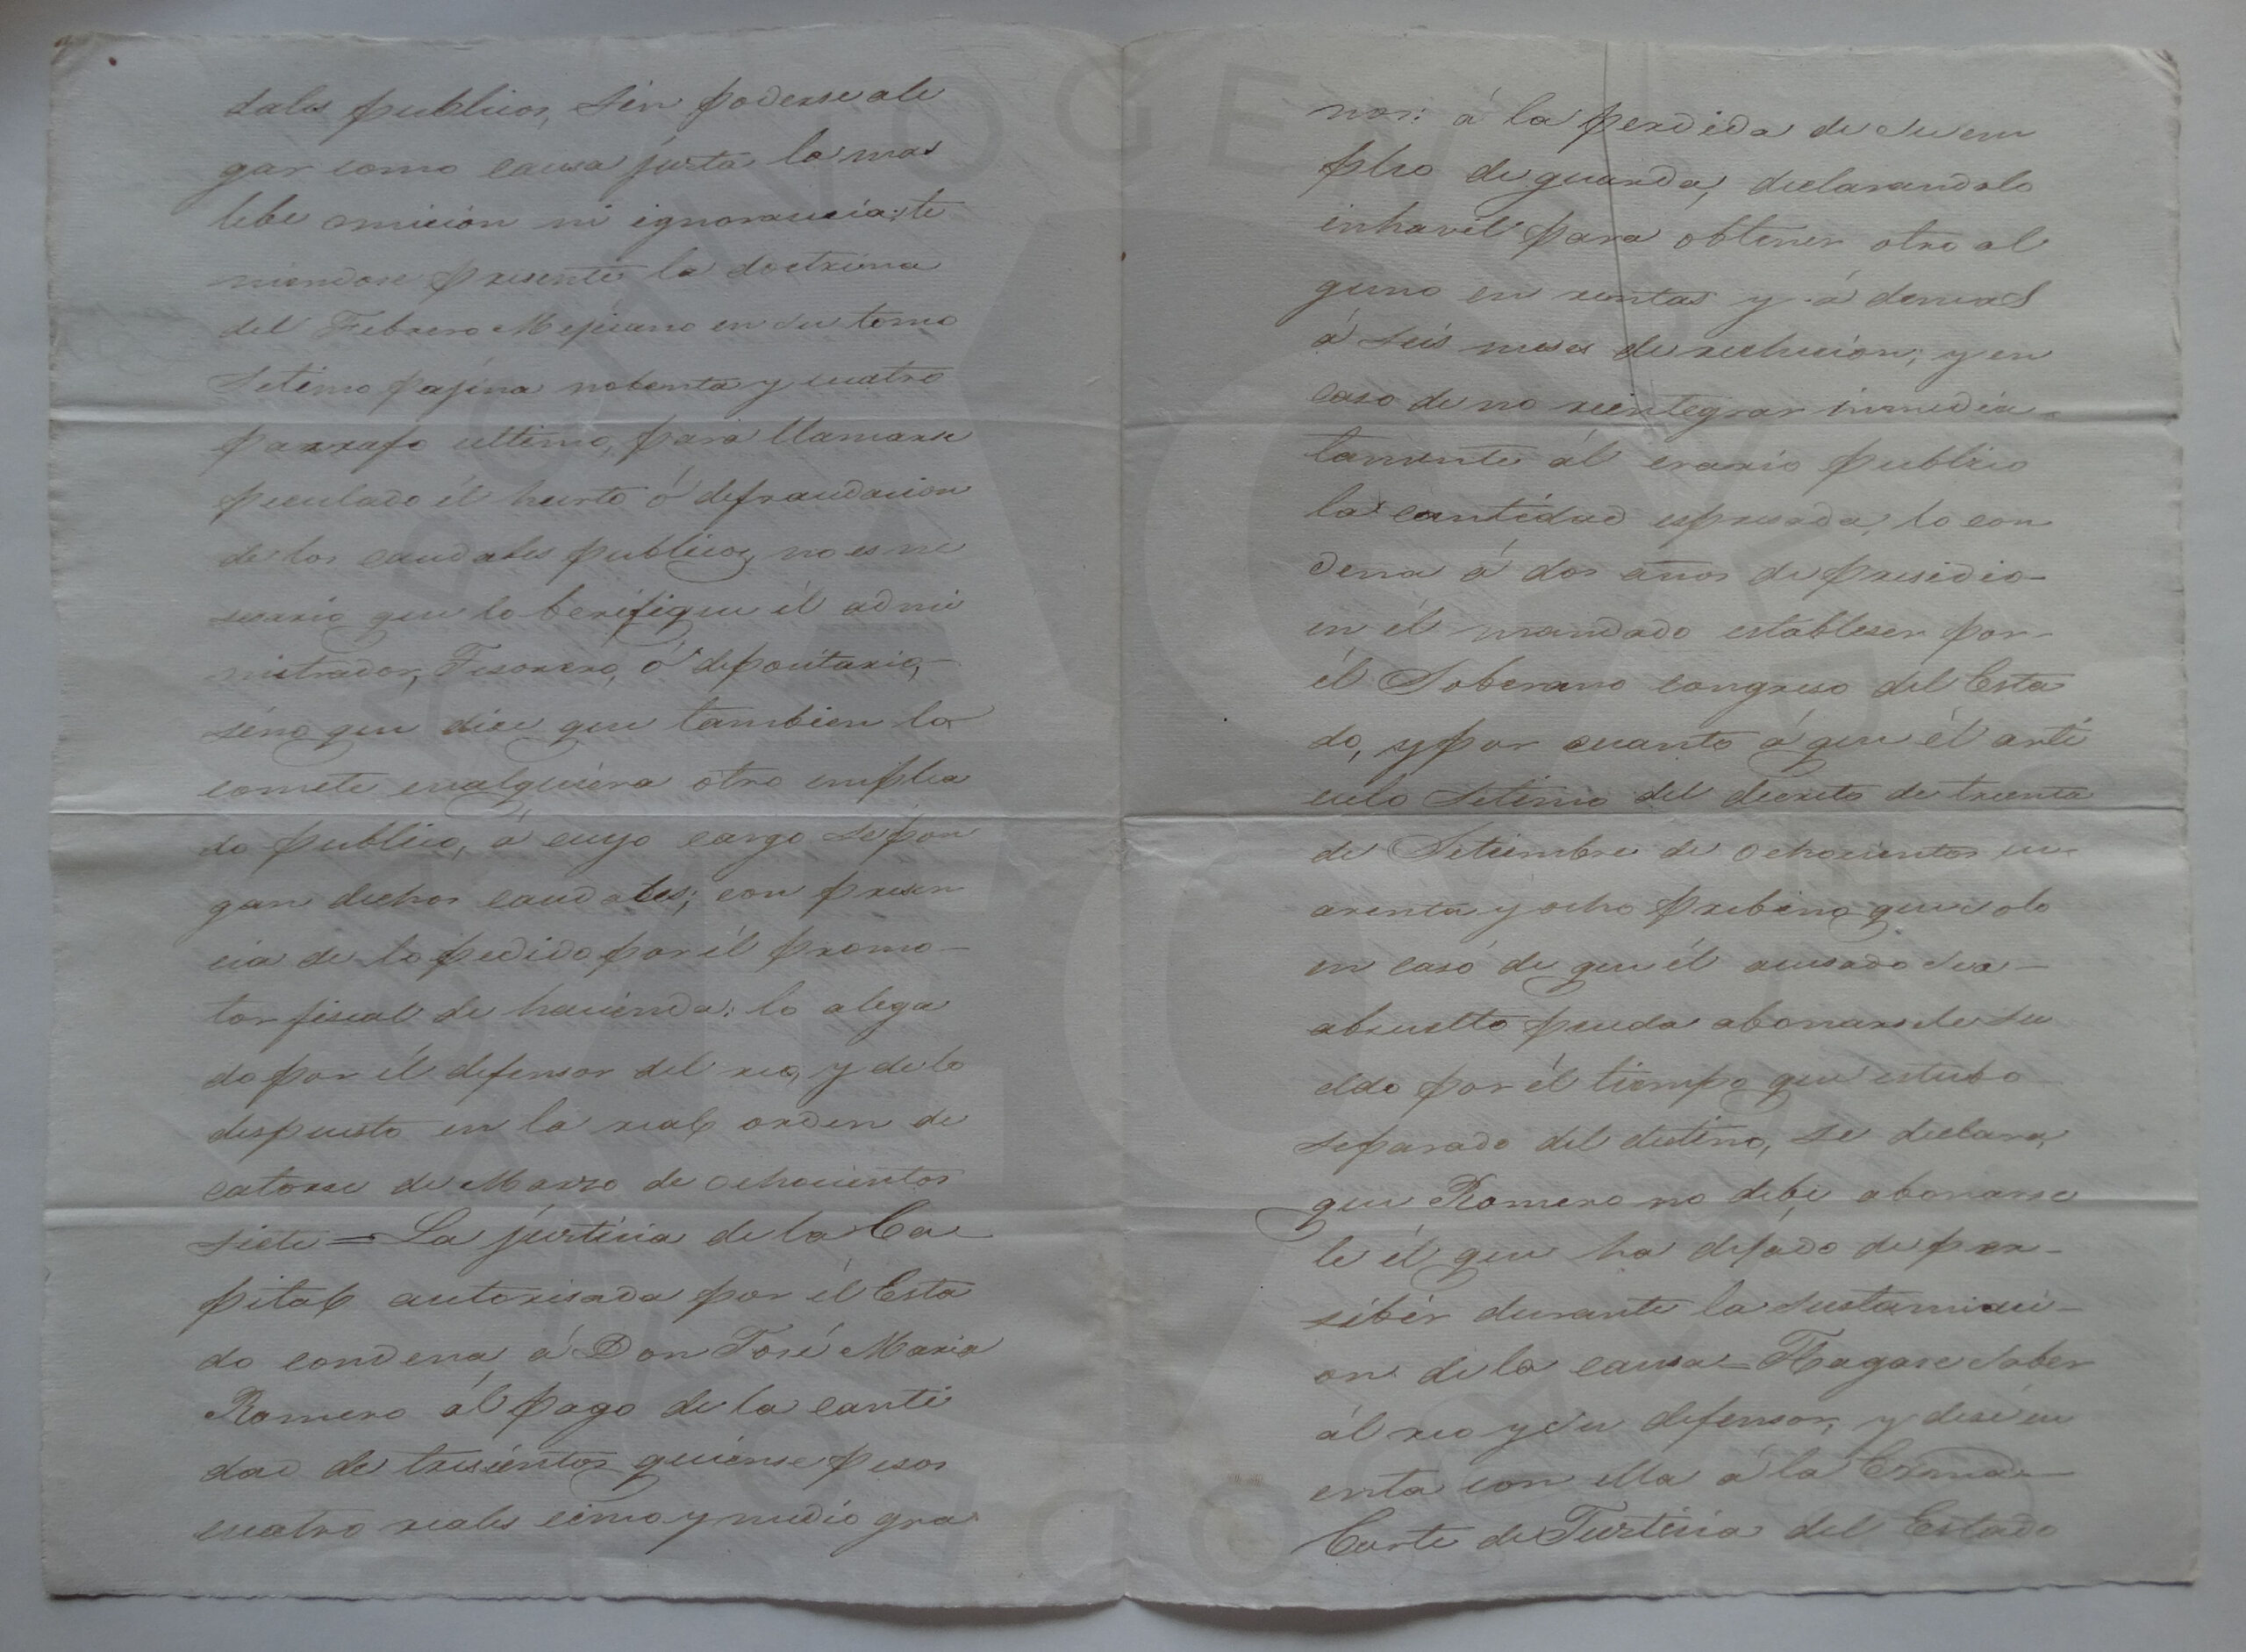 dales publicos, sin poderse ale
gar como causa justa la mas
lebe omicion ni ignorancia; te
niendose presente la doctrina
del Febrero Mejicano en su tomo
Setimo pajina nobenta y cuatro
parrafo ultimo, para llamarse
peculado él hurto ó defraudacion
de los caudales publicos, no es ne
sesario que lo berifique él admi
nistrador, Tesorero, ó depocitario,
sino que dice que tambien lo
comete cualquiera otro emplea
do publico, á cuyo cargo se pon
gan dichos caudales; con presen
cia de lo pedido por él promo-
tor fiscal de hacienda: lo alega
do por él defensor del reo, y de lo
dispuesto en la real orden de
catorse de Marzo de ochocientos
siete = La justicia de la Ca
pital autorisada por él Esta
do condena á Don José Maria
Romero ál pago de la canti
dad de tresientos quiense pesos
cuatro reales cinco y medio gra
nos: á la perdida de su em
pleo de guarda, declarandolo
inhavil para obtener otro al
guno en rentas y á demas
á seis meses de reclucion; y en
caso de no reintegrar inmedia-
tamente ál erario publico
la cantidad espresada, lo con
dena á dos años de presidio-
en él mandado estableser por-
él Soberano congreso del Esta
do, y por cuanto á que él arti
culo Setimo del decreto de treinta
de Setiembre de ochocientos cu-
arenta y ocho prebino que solo
en caso de que él acusado sea-
absuelto pueda abonarsele su
eldo por él tiempo que estubo
separado del destino, se declara,
que Romero no debe abonarse
le él que ha dejado de per-
sibir durante la sustanciaci-
on de la causa = Hagase saber
ál reo y su defensor, y dese cu
enta con ella á la Exma.
Corte de Justicia del Estado